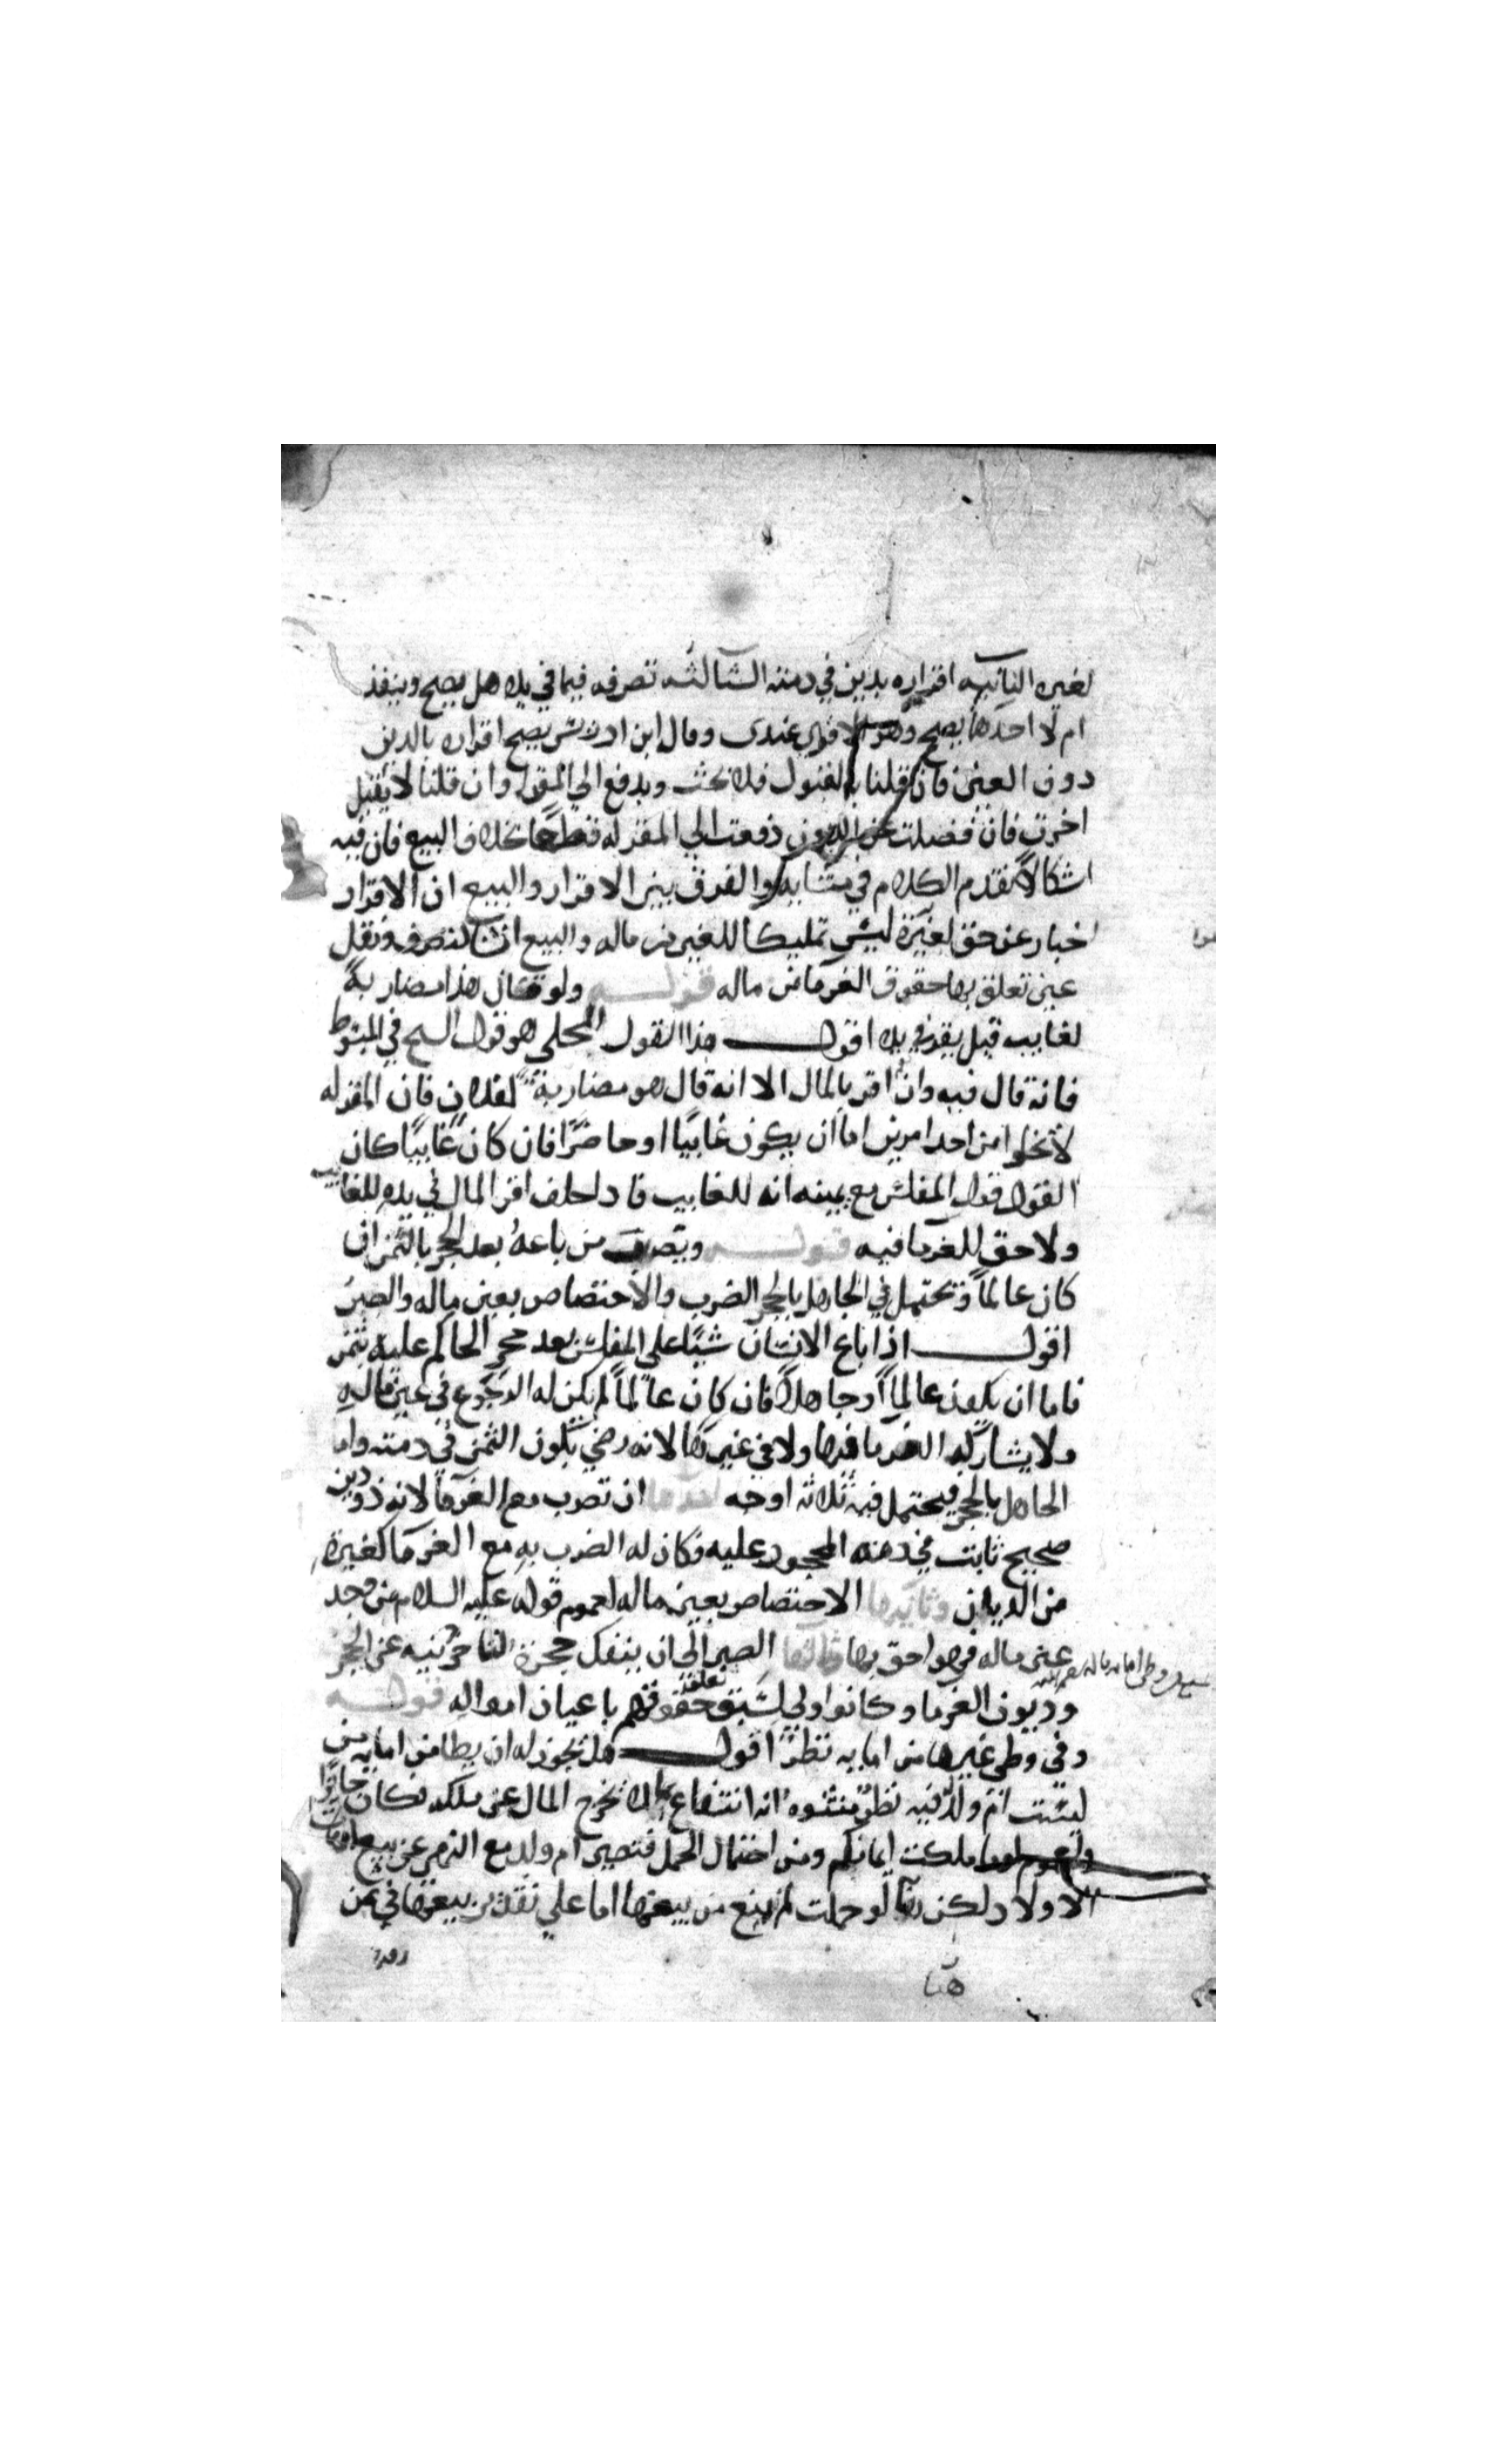 لغيره الثانية اقراره بدين في ذمته الثالثة تصرفه فيما في يده هل يصح وينفذ
ام لا احدها يصح وهو الاقوى عندى وقال ابن ادريس يصح اقراره بالدين
دون العين فان قلنا بالقبول فلا بحث ويدفع الى المقر له وان قلنا لا يقبل
اخرت فان فضلت عن الديون دفعت الي المقر له قطعا بخلاف البيع فان فيه
اشكالا تقدم الكلام في والفرق بين الاقرار والبيع ان الاقرار
اخبار عن حق لغيره ليس تمليكا للغير من ماله والبيع التصرف ونقل
عين تعلق بها حقوق الغرما من ماله قوله ولو قال هذا مضاربة
لغايب قيل يقر في يده اقول هذا القول المحكي هو قول الشيخ في المبسوط
فانه قال فيه وان اقر بالمال الا انه قال هو مضاربة لفلان فان المقر له
لا يخلوا من احد امرين اما ان يكون غايبا او حاضرا فان كان غايبا كان
القول قول المفلس مع يمينه انه للغايب فاذا حلف اقر المال في يده للغايب
ولا حق للغرما فيه قوله ويضرب من باعه بعد الحجر بالثمن ان
كان عالما ويحتمل في الجاهل بالحجر الضرب والاختصاص بعين ماله والصبر
اقول اذا باع الانسان شيئا على المفلس بعد حجر الحاكم عليه بثمن
فاما ان يكون عالما او جاهلا فان كان عالما لم يكن له الرجوع في عين ماله
ولا يشارك الغرما فيها ولا في غيرها لانه رضي بكون الثمن في ذمته واما
الجاهل بالحجر فيحتمل فيه ثلاثة اوجه احدها ان يضرب مع الغرما لانه ذو دين
صحيح ثابت في ذمة المحجور عليه فكان له الضرب به مع الغرما كغيره
من الديان وثانيها الاختصاص بعين ماله لعموم قوله عليه السلام من وجد
عين ماله فهو احق بها ثالثها الصبر الى ان ينفك حجره لتاخر دينه عن الحجر
وديون الغرما وكانوا اولى لسبق تعلق حقوقهم باعيان امواله قوله
وفي وطي غيرها من امايه نظر اقول هل يجوز له ان يطا من امايه من
ليست ام ولد فيه نظر منشوه انه انتفاع لا يخرج المال عن ملكه فكان جايزا
ملكت ايمانكم ومن احتمال الحمل فتصير ام ولد مع النهي عن بيع امهات
الاولاد لكن لو حملت لم يمنع من بيعها اما على تقدير بيعها في ثمن